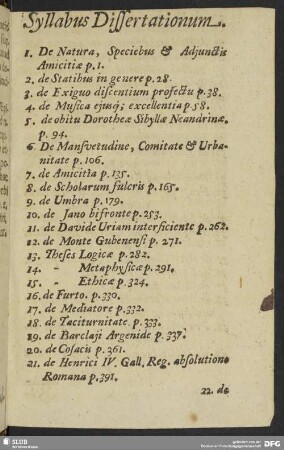 Syllabus Dissertationum.
1. De Natura, Speciebus & Adjunctis
Amicitiæ p. 1.
2. de Statibus in genere p. 28.
3. de Exiguo discentium profectu p. 38.
4. de Musica ejusq; excellentia p. 58.
5. de obitu Dorotheæ Sibyllæ Neandrinæ.
p. 94.
6. De Mansvetudine, Comitate & Urba-
nitate p. 106.
7. de Amicitia p. 135.
8. de Scholarum fulcris p. 165.
9. de Umbra p. 179.
10. de Jano bifronte p. 253.
11. de Davide Uriam interficiente p. 262.
12. de Monte Gubenensi p. 271.
13. Theses Logicæ p. 282.
14. - Metaphysicæ p. 291.
15. - Ethicæ p. 324.
16. de Furto. p. 330.
17. de Mediatore p. 332.
18. de Taciturnitate p. 333.
19. de Barclaji Argenide p. 337.
20. de Cosacis p. 361.
21. de Henrici IV. Gall. Reg. absolutione
Romana p. 391.
22. de
SLUB
DFG